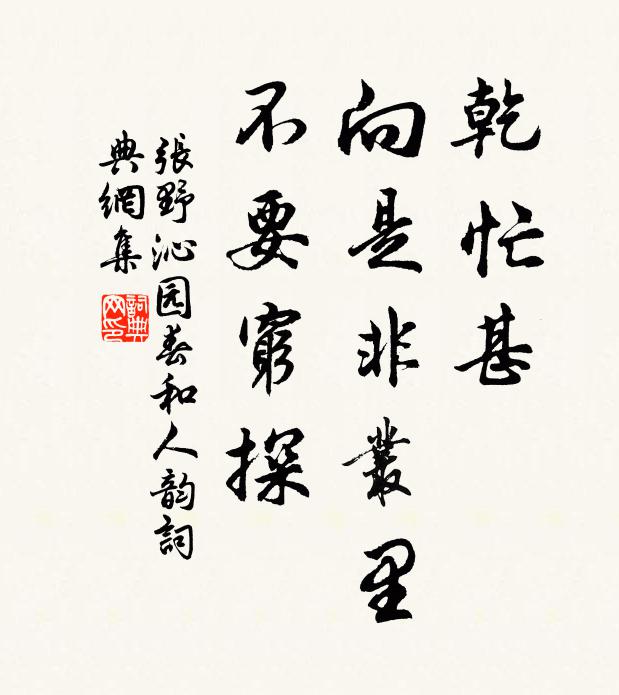 乾忙甚
向是非叢里
不要窮探
張野沁园春和人韵詞
典網集
詞典網印